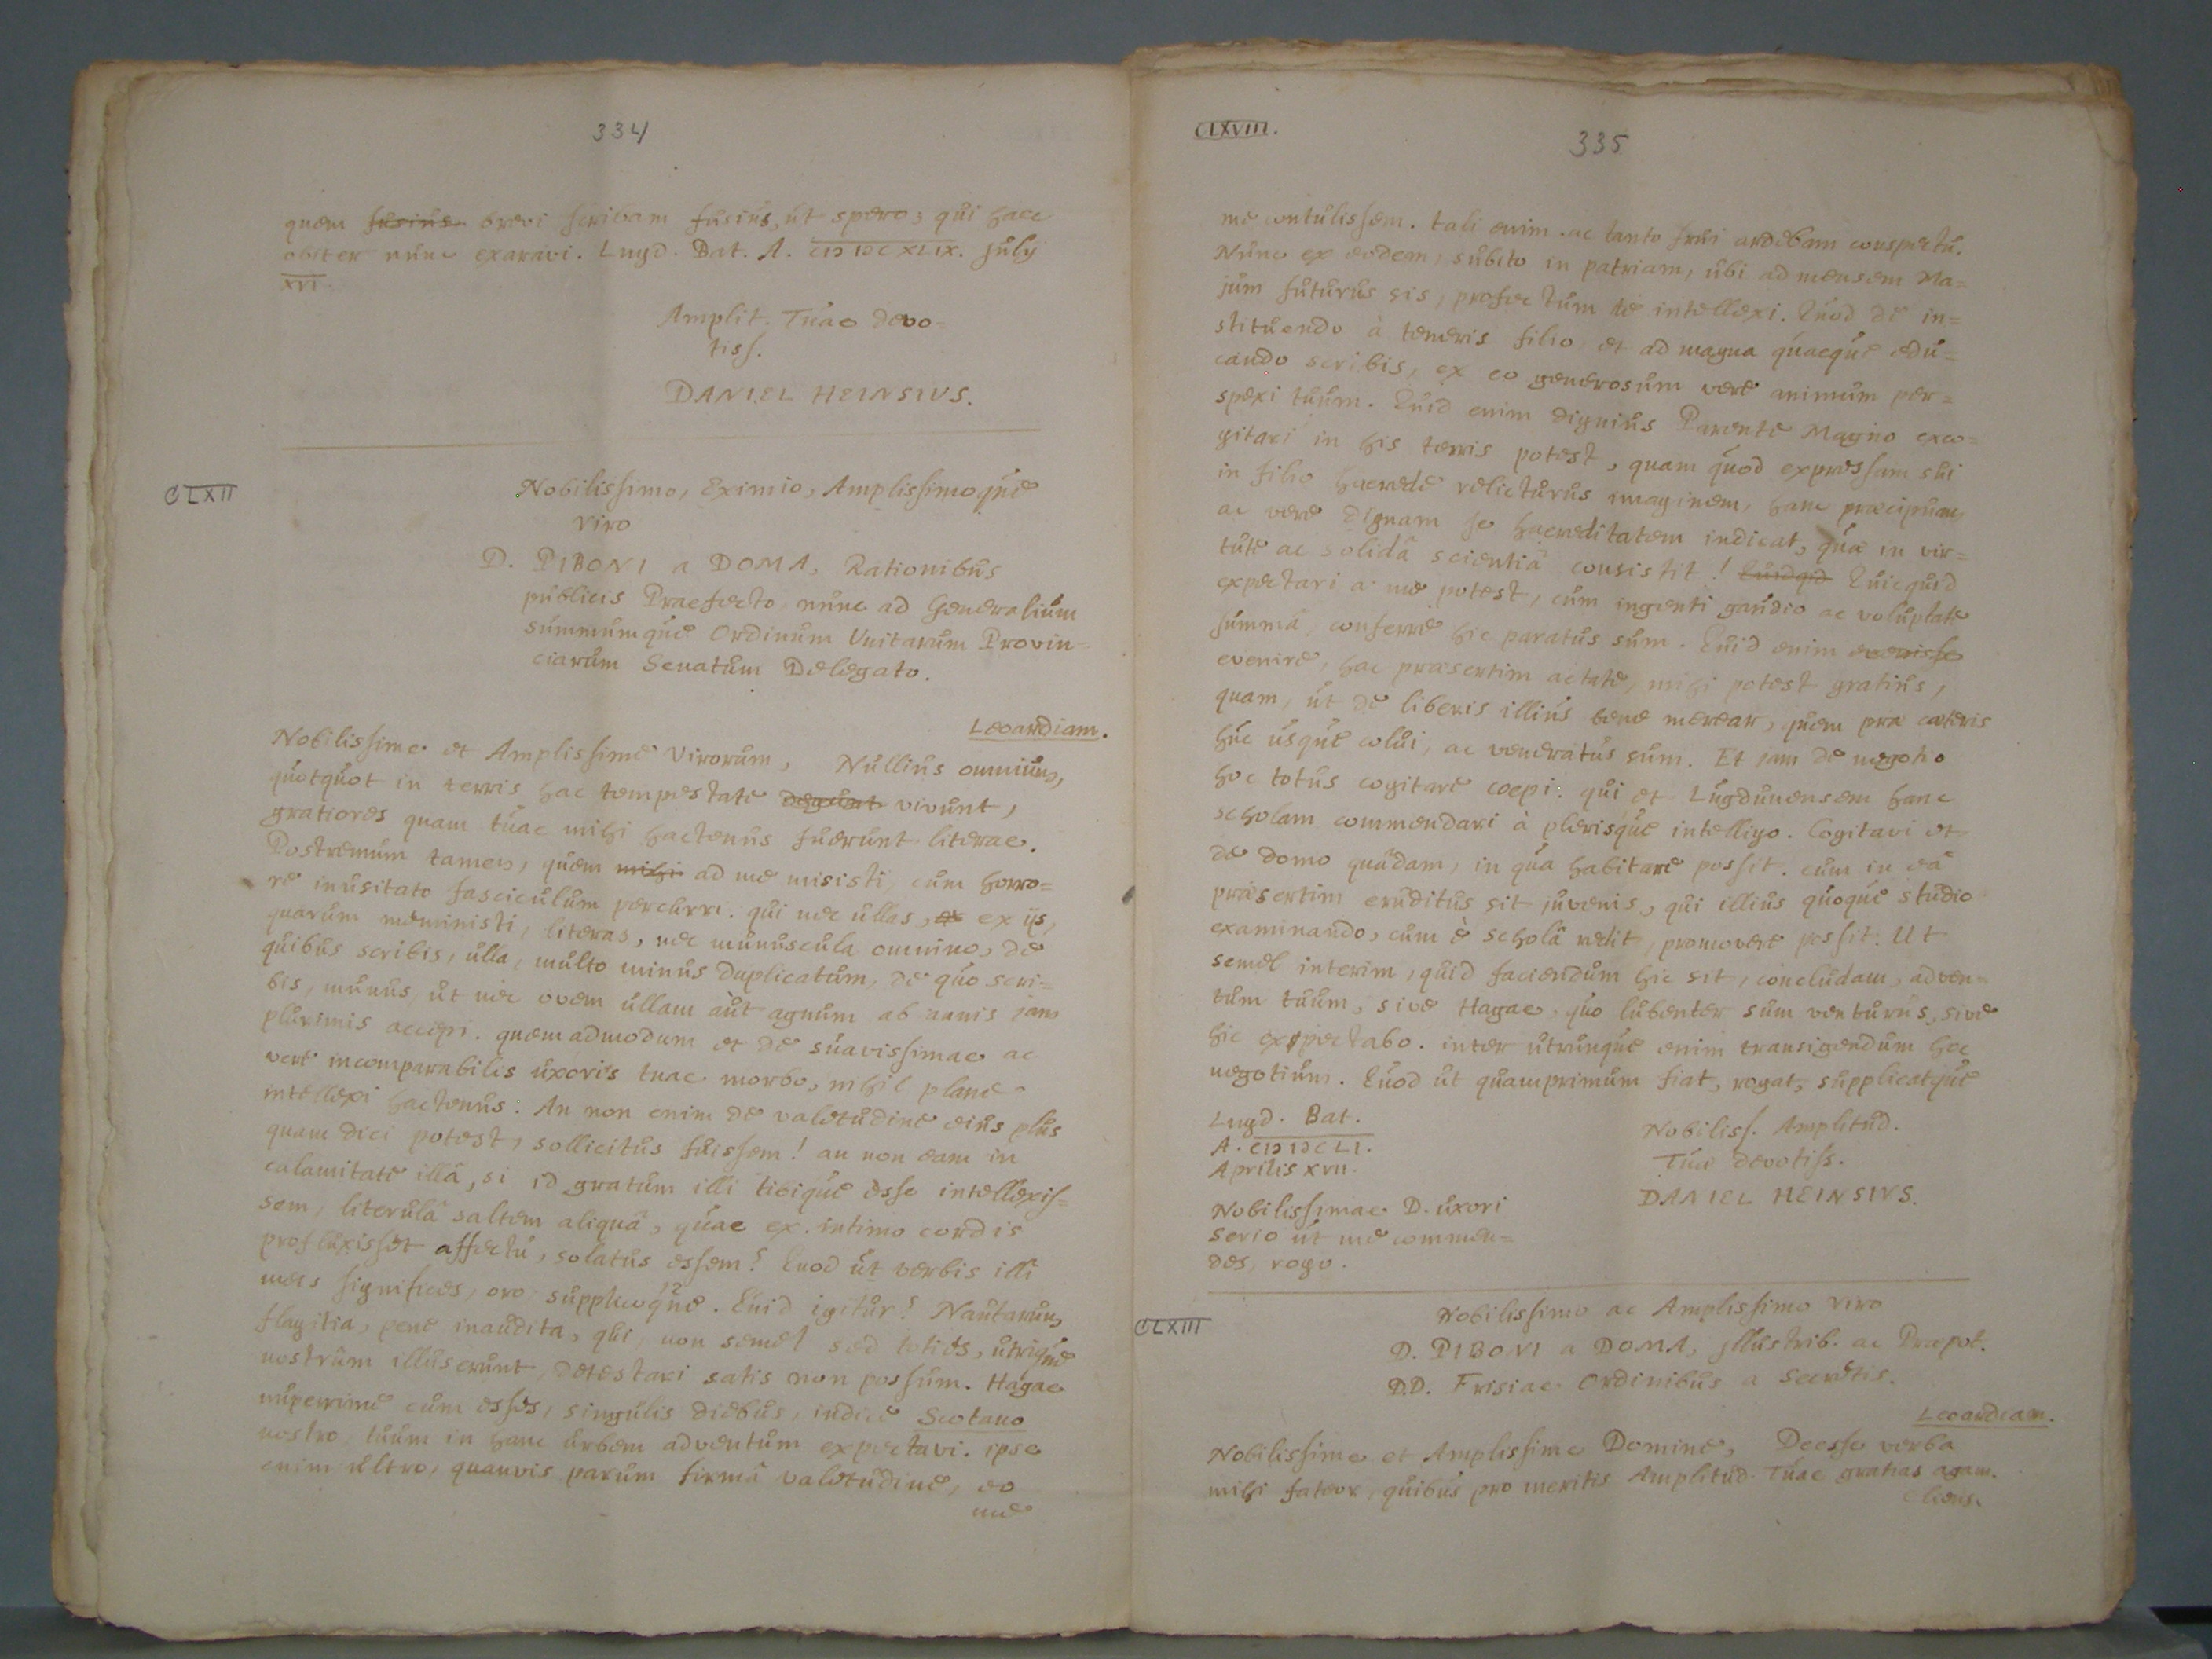 334
quem fusius brevi scribam fusius, ut spero, qui haec
obiter nunc exaravi. Lugd. Bat. A. CIƆ IƆC XLIX. july
XVI.
Amplit. Tuae devo-
tiss.
DANIEL HEINSIUS.
CLXII
Nobilissimo, Eximio, Amplissimoque
viro
D. PIBONI a DOMA, Rationibus
publicis Praefecto, nunc ad Generalium
summumque Ordinum Unitarum Provin-
ciarum Senatum Delegato.
Leoardiam.
Nobilissime et Amplissime Virorum, Nullius omnium,
quotquot in terris hac tempestate degunt vivunt,
gratiores quam tuae mihi hactenus fuerunt literae.
Postremum tamen, quem mihi ad me misisti, cum horro-
re inusitato fasciculum percurri. qui nec ullas, ex ijs,
quarum meministi, literas, nec munuscula omnino, de
quibus scribis, ulla, multo minus duplicatum, de quo scri-
bis, munus, ut nec ovem ullam aut agnum ab annis jam
plurimis accepi. quemadmodum et de suavissimae ac
vere incomparabilis uxoris tuae morbo, nihil plane
intellexi hactenus. An non enim de valetudine eius plus
quam dici potest, sollicitus fuissem! an non eam in
calamitate illâ, si id gratum illi tibique esse intellexis-
sem, literulâ saltem aliquâ, quae ex intimo cordis
profluxisset affectu, solatus essem? Quod ut verbis illi
meis significes, oro supplicoque. Quid igitur? Nautarum
flagitia, pene inaudita, qui, non semel sed toties, utrique
nostrum illuserunt, detestari satis non possum. Hagae
nuperrime cum esses, singulis diebus, indice Scotano
nostro, tuum in hanc urbem adventum expectavi. ipse
enim ultro, quanvis parum firmâ valetudine, eo
me
CLXVIII.
335
me contulissem. tali enim ac tanto frui ardebam conspectu.
Nunc ex eodem, subito in patriam, ubi ad mensem Ma-
jum futurus sis, profectum te intellexi. Quod de in-
stituendo à teneris filio et ad magna quaeque edu-
cando scribis, ex eo generosum vere animum per-
spexi tuum. Quid enim dignius Parente Magno exco-
gitari in his terris potest, quam quod expressam sui
in filio haerede relicturus imaginem, hanc praecipuam
ac vere dignam se haereditatem indicat, quae in vir-
tute ac solidâ scientiâ consistit! Quidqid Quicquid
expectari a me potest, cum ingenti gaudio ac voluptate
summâ, conferre hic paratus sum. Quid enim evenisse
evenire, hac praesertim aetate, mihi potest gratius,
quam, ut de liberis illius bene merear, quem prae caeteris
huc usque colui, ac veneratus sum. Et jam de negotio
hoc totus cogitare coepi: qui et Lugdunensem hanc
scholam commendari à plerisque intelligo. Cogitavi et
de domo quâdam, in qua habitare possit. cum in eâ
praesertim eruditus sit juvenis, qui illius quoque studio
examinando, cum è scholâ redit, promovere possit. Ut
semel interim, quid faciendum hic sit, concludam, adven-
tum tuum, sive Hagae, quo lubenter sum venturus, sive
hic expectabo. inter utrunque enim transigendum hoc
negotium. Quod ut quamprimum fiat, rogat, supplicatque
Lugd. Bat.
A. CIƆ IƆC LI.
Aprilis XVII.
Nobiliss. Amplitud.
Tuae devotiss.
DANIEL HEINSIUS.
Nobilissimae D. uxori
serio ut me commen-
des, rogo.
CLXIII
Nobilissimo ac Amplissimo viro
D. PIBONI a DOMA, Illustrib. ac Praepot.
D.D. Frisiae Ordinibus a Secretis.
Leoardiam.
Nobilissime et Amplissime Domine, Deesse verba
mihi fateor, quibus pro meritis Amplitud. Tuae gratias agam.